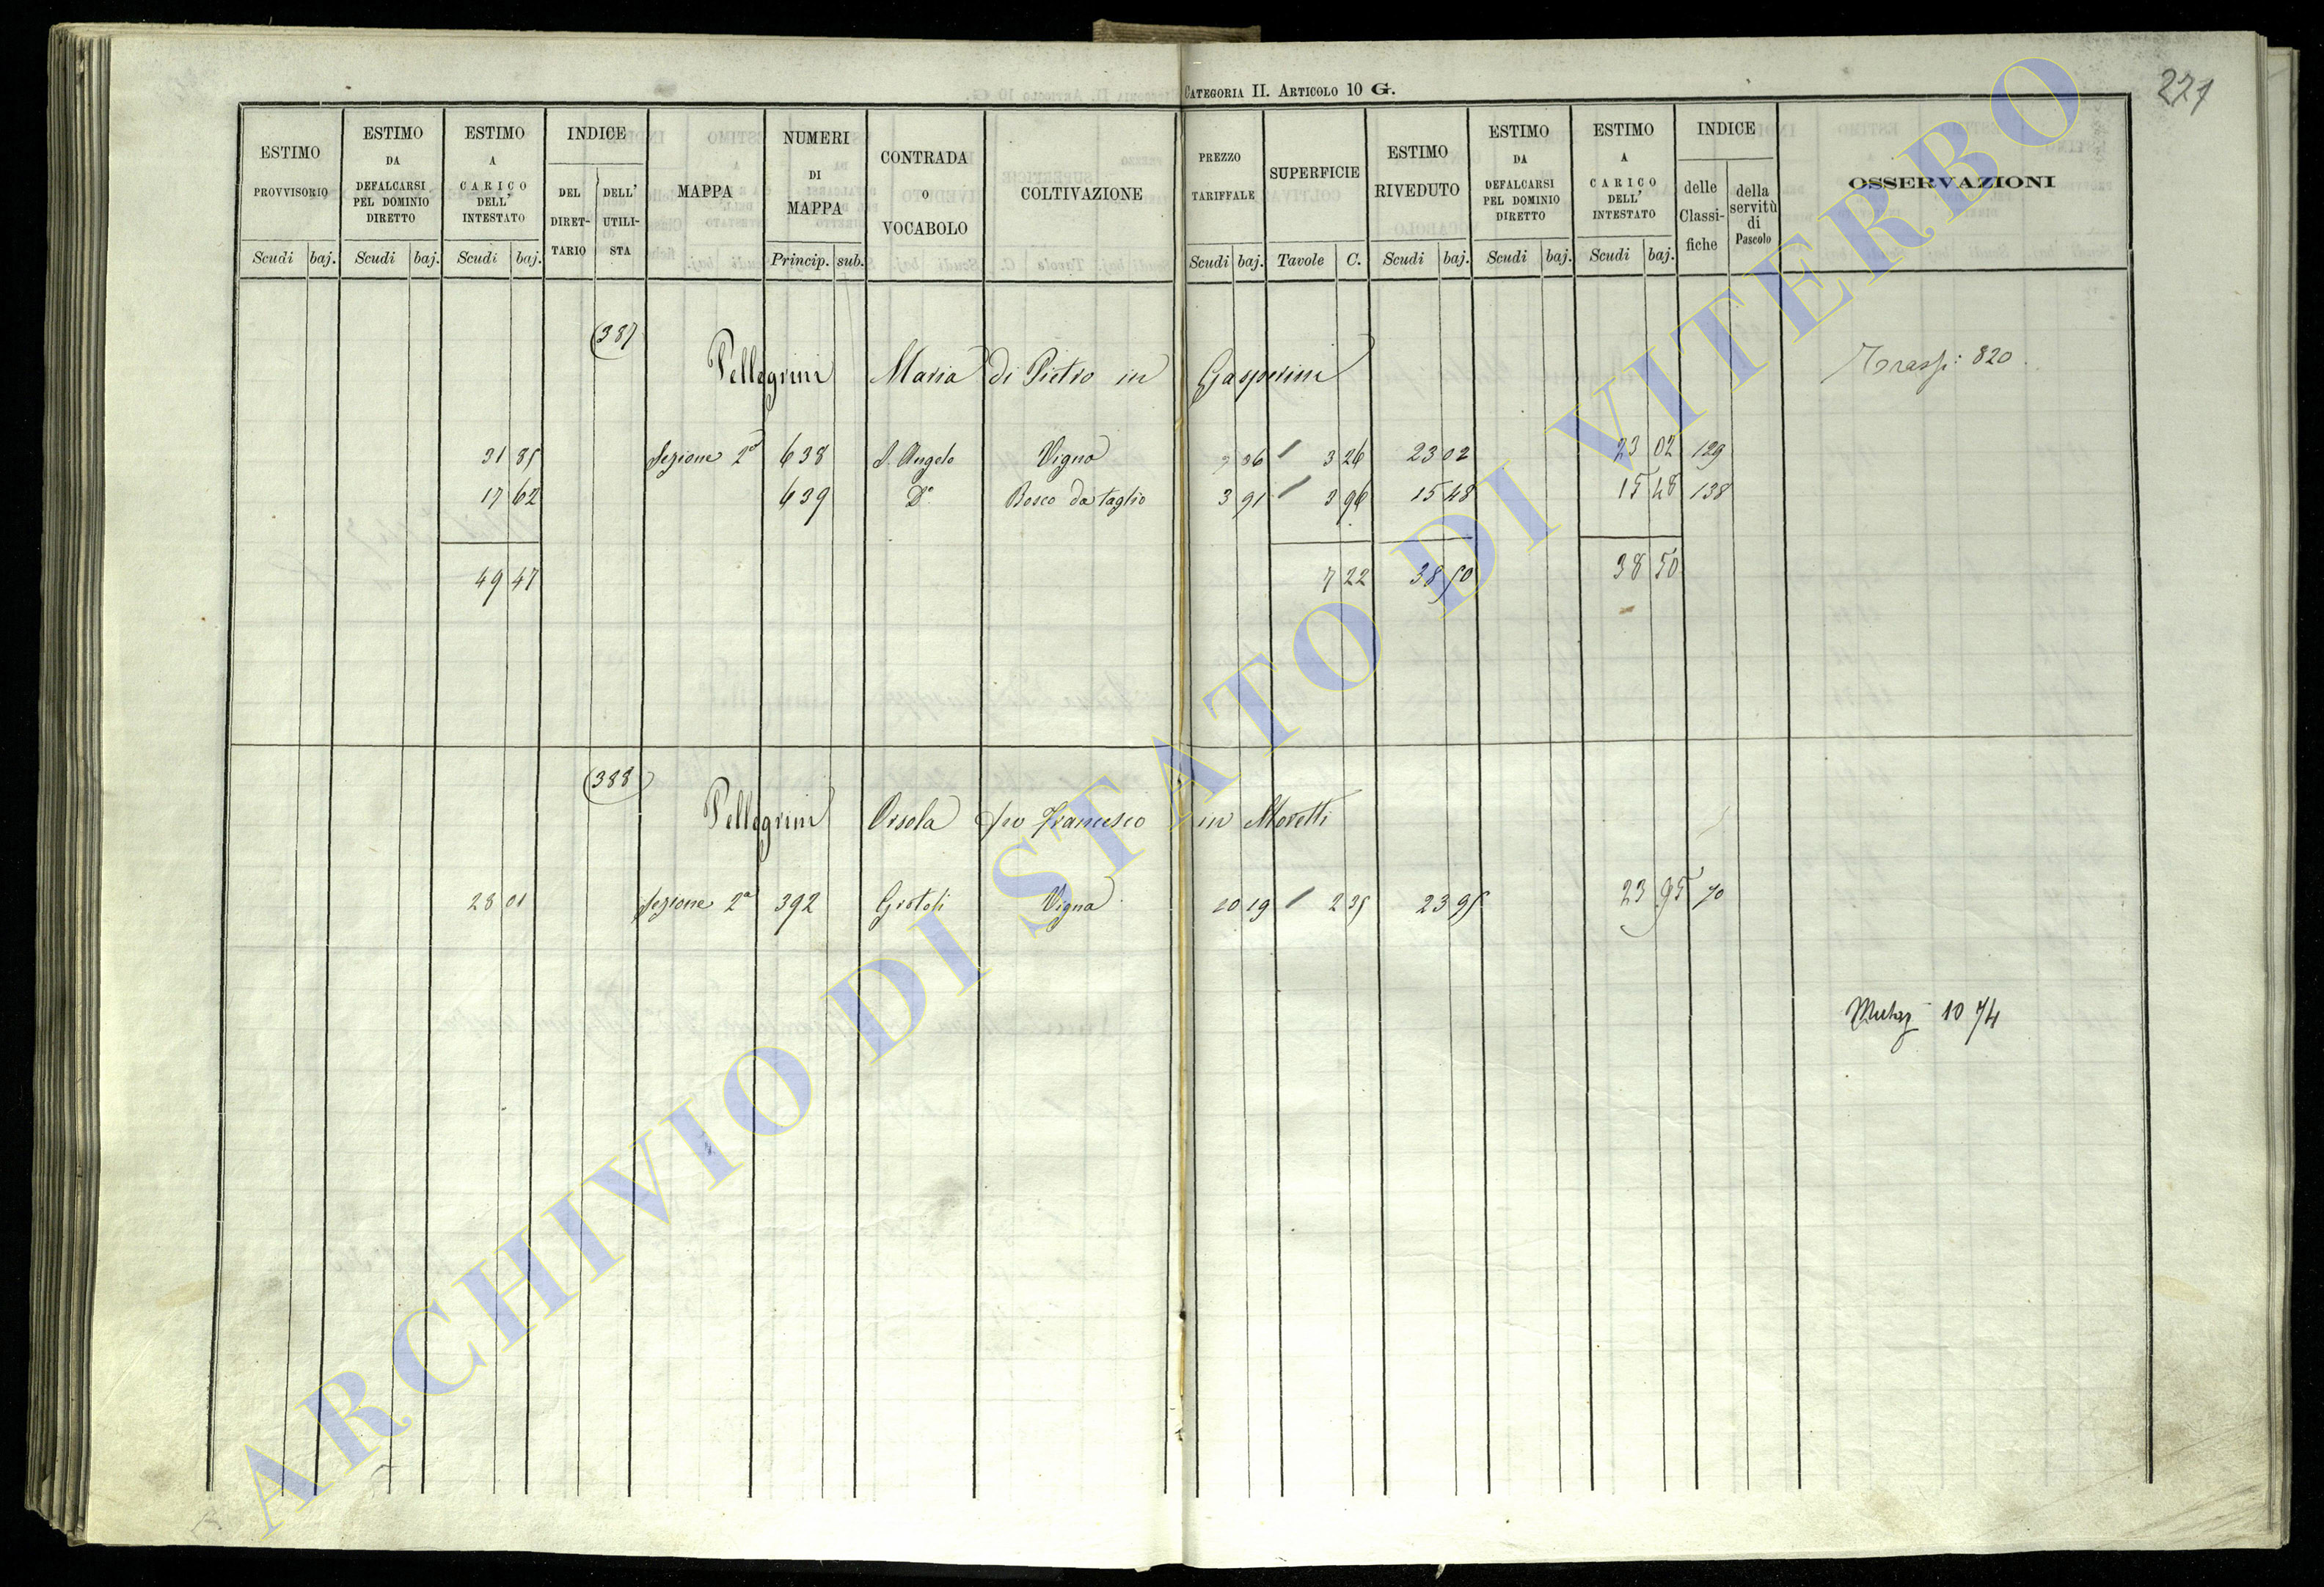 CATEGORIA II. ARTICOLO 10 G.
221
ESTIMO PROVVISORIO Scudi baj.
ESTIMO DA DEFALCARSI PEL DOMINIO DIRETTO Scudi baj.
ESTIMO A CARICO DELL' INTESTATO Scudi baj.
INDICE DEL DIRET-TARIO DELL' UTILI-STA
MAPPA
NUMERI DI MAPPA Princip. sub.
CONTRADA O VOCABOLO
COLTIVAZIONE
PREZZO TARIFFALE Scudi baj.
SUPERFICIE Tavole C.
ESTIMO RIVEDUTO Scudi baj.
ESTIMO DA DEFALCARSI PEL DOMINIO DIRETTO Scudi baj.
ESTIMO A CARICO DELL' INTESTATO Scudi baj.
INDICE delle Classi-fiche della servitù di Pascolo
OSSERVAZIONI
387
Pellegrini Maria di Pietro in Gasperini 820
31 85 Sezione 2ª 638 S. Angelo Vigna 06 3 26 23 02 23 02 129
17 62 639 Dº Bosco da taglio 3 91 3 96 15 48 15 48 138
49 47 7 22 38 50 38 50
388
Pellegrini Orsola fu Francesco in Moretti
28 01 Sezione 2ª 392 Grotoli Vigna 10 19 2 35 23 95 23 95 70
10 74
ARCHIVIO DI STATO DI VITERBO